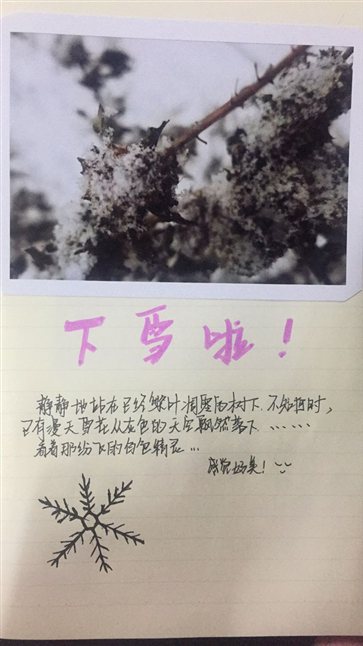 下雪啦！
静静地站在已经败叶凋零的树下．不知何时，
已有漫天雪花从灰色的天空飘然落下……
看着那纷飞的白色精灵…
感觉好美！